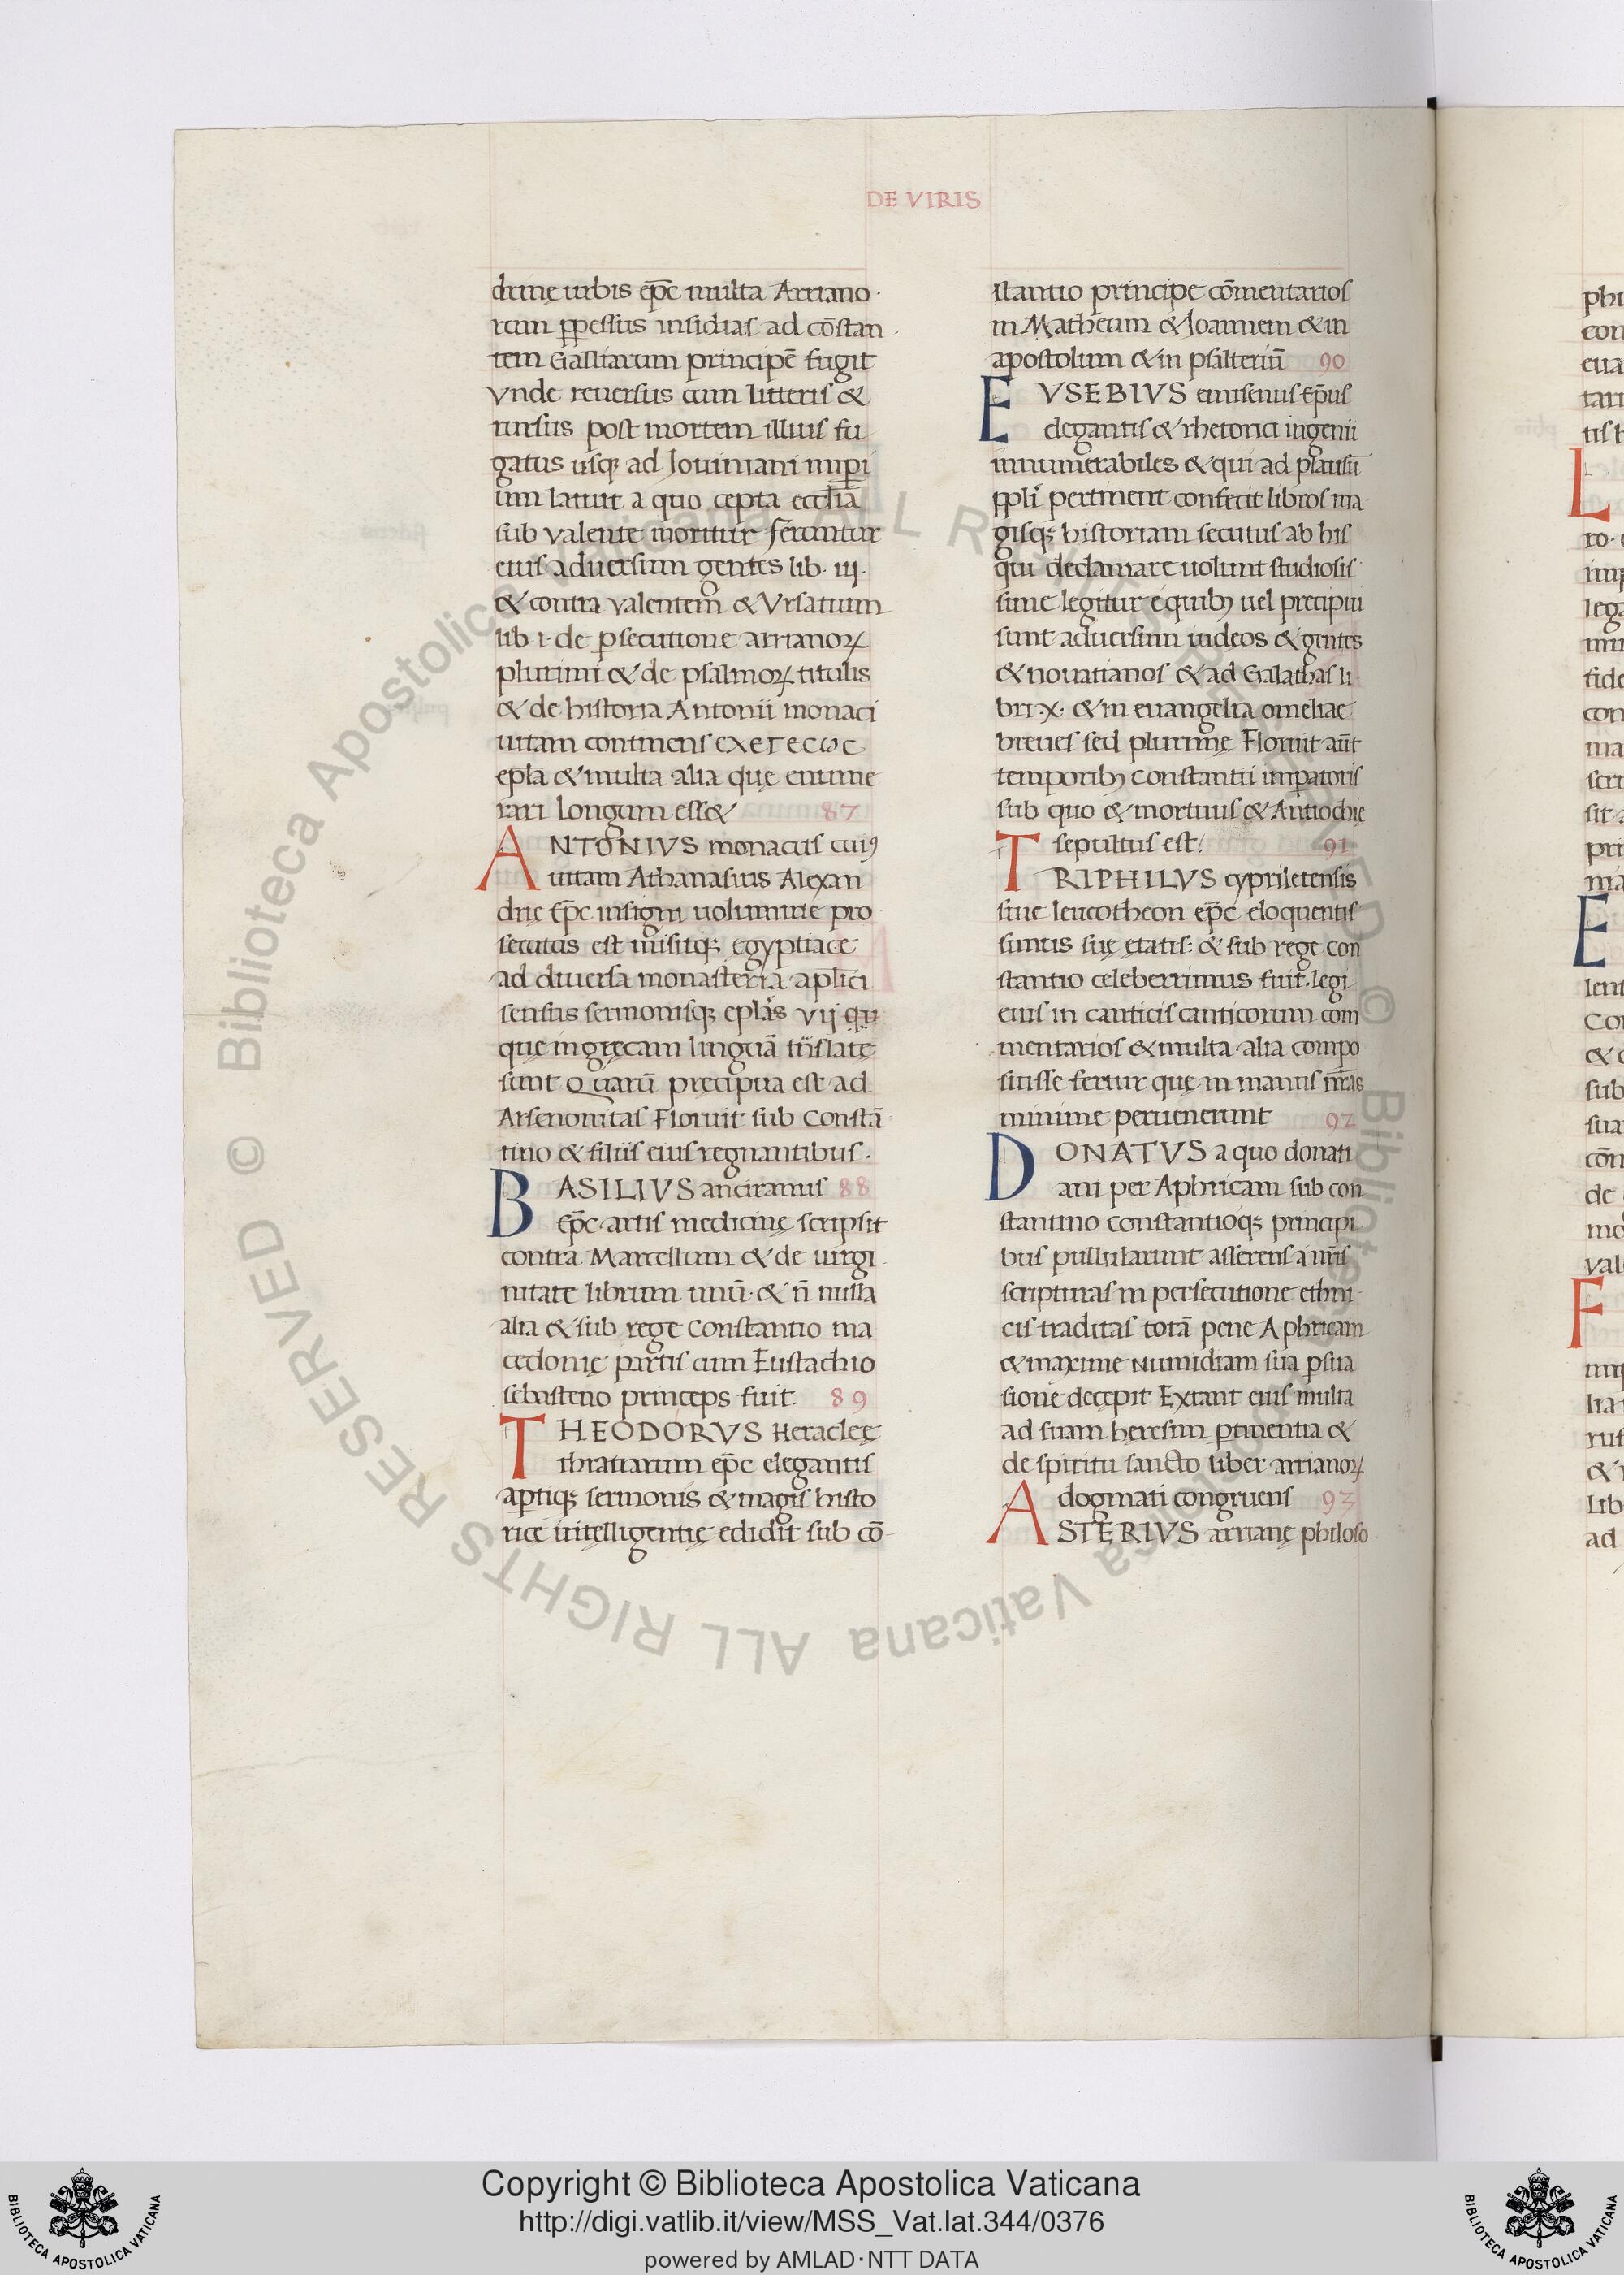 DE VIRIS
drinę urbis ep̄c multa Arriano·
rum p̱pessus insidias ad cōstan
tem Galliarum principē fugit
Vnde reuersus cum litteris &
rursus post mortem illius fu
gatus usq; ad Jouiniani imp̱i
um latuit a quo cepta eccl̄ia
sub valente moritur Feruntur
eius aduersum gentes lib· iij·
& contra valentem & Vrsatium
lib ı· de p̱secutione arrianoꝝ
plurimi & de psalmoꝝ titulis
& de historia Antonii monaci
uitam continens exετεcωc
ep̄la & multa alia quę enume
rari longum ess& 87
ANTONIVS monacus cuiꝰ
uitam Athanasius Alexan
drię Ep̄c insigni uolumine pro
secutus est misitq; egyptiace
ad diuersa monasteria ap̄lici
sensus sermonisq; ep̄las vij qu
quę in gręcam linguā trāslatę
sunt Quarū precipua est ad
Arsenonitas Floruit sub Constā
tino & filiis eius regnantibus·
BASILIVS anciranus 88
Ep̄c artis medicinę scripsit
contra Marcellum & de uirgi
nitate librum unū· & n̄ nulla
alia & sub rege Constantio ma
cedonię partis cum Eustachio
sebasteno princeps fuit 89
THEODORVS Heracleę
thratiarum ep̄c elegantis
ap̱tiq; sermonis & magis histo
ricę intelligentię edidit sub cō
stantio principe cōmentarios
in Matheum & Joannem & in
apostolum & in psalteriū 90
EVSEBIVS emisenus Ep̄us
elegantis & rhetorici ingenii
innumerabiles & qui ad plausū
ppl̄i pertinent confecit libros ma
gisq; historiam secutus ab his
qui declamare uolunt studiosis
sime legitur e quibꝫ uel precipui
sunt aduersum iudeos & gentes
& nouatianos & ad Galathas li
bri·x· & in euangelia omeliae
breues sed plurimę Floruit aūt
temporibꝫ constantii imp̱atoris
sub quo & mortuus & Antiochię
sepultus est 91
TRIPHILVS cypriletensis
siue leucotheon ep̄c eloquentis
simus suę etatis: & sub rege con
stantio celeberrimus fuit· legi
eius in canticis canticorum com
mentarios & multa alia compo
suisse fertur quę in manus nr̄as
minime peruenerunt 92
DONATVS a quo donati
ani per Aphricam sub con
stantino constantioq; principi
bus pullularunt asserens a nr̄is
scripturas in persecutione ethni
cis traditas totā pene Aphricam
& maxime Numidiam sua p̱sua
sione decepit Extant eius multa
ad suam heresim p̱tinentia &
de spiritu sancto liber arrianoꝝ
dogmati congruens 93
ASTERIVS arrianę philoso
phi
con
eua
tari
tis h
L
ro·
imp
lega
mi
fide
con
ma
scri
sit
pri
ma
E
lent
Co
& c
sub
sua
cōn
de
mo
val
F
lia
ruf
&
Lib
ad
© Biblioteca Apostolica Vaticana ALL RIGHTS RESERVED © Biblioteca Apostolica Vaticana ALL RIGHTS RESERVED
Copyright © Biblioteca Apostolica Vaticana
http://digi.vatlib.it/view/MSS_Vat.lat.344/0376
powered by AMLAD·NTT DATA
BIBLIOTECA APOSTOLICA VATICANA
BIBLIOTECA APOSTOLICA VATICANA